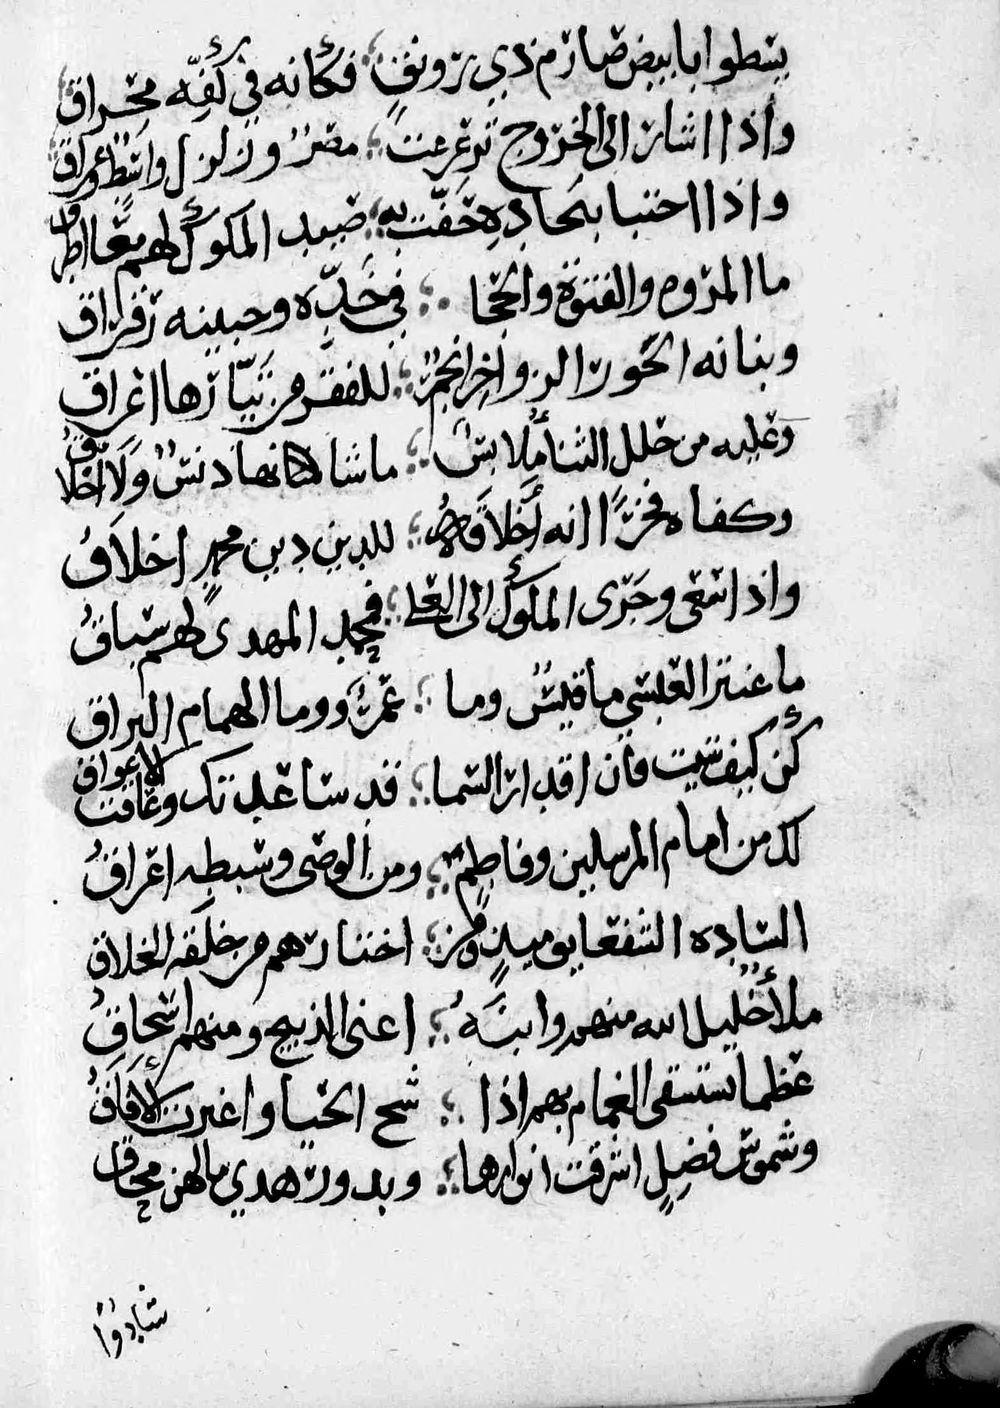 يسطوا بابيض صارم ذي رونقٍ ؛ فكانه في كفّه مخراق
واذا اشار الى الخروج تزعزعت ؛ مصرٌ وزلزل واسطٌ وعراق
واذا احتبا بنجاده حَفّت به ؛ صيد الملوك لهم معا اطراق
ما المزن والفتوة والحجا ؛ في خدّه وجبينه رقراق
وبنانه الحور الزواخر انجمٌ ؛ للفقر من تيّارها اغراق
وعليه من حلل الثنا ملابسٌ ؛ ما شانها دنسٌ ولا اخلاق
وكفاه فخرًا انه أخلاقه ؛ للدين دين محمدٍ اخلاقُ
واذا سعى وجرى الملوك الى العلى ؛ فمحمد المهدي لهم سباقُ
ما عنتر العبسي ما قيسٌ وما ؛ عمرٌو وما الهمام البراق
كن كيف شيت فان اقدار السما ؛ قد ساعدتك وعافت الاعواق
لك من امام المرسلين وفاطمٍ ؛ ومن الوصي وسبطه اعراقُ
الساده الشفعا يوميذٍ ومن ؛ اختارهم من خلقه الخلاق
ملأٌ خليل الله منهم وابنهُ ؛ اعني الذبيح ومنهم اسحاقُ
عظما تستسقى الغمام بهم اذا ؛ شح الحيا واغبرت الآفاقُ
وشموس فضلٍ اشرقت انوارها ؛ وبدور هدي مالهن محاق
شادوا